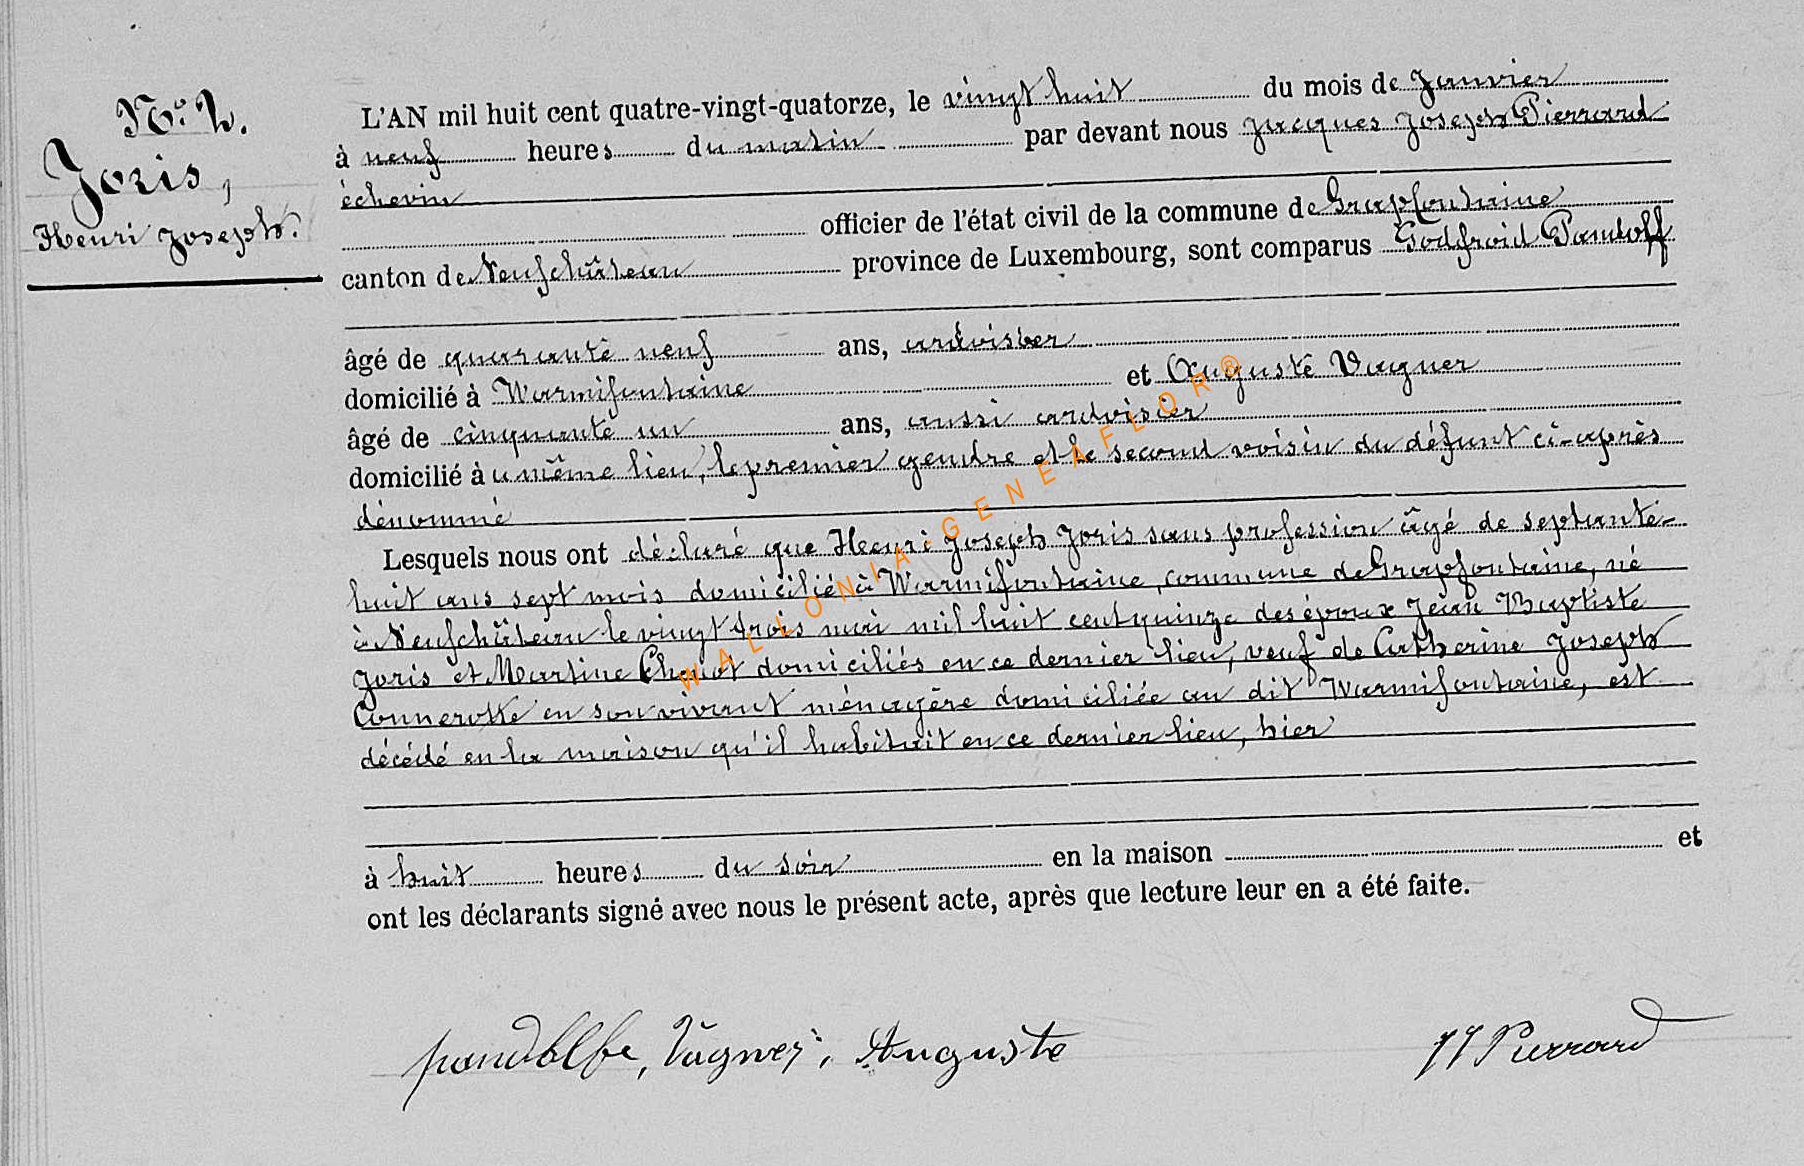 N° 2.
Joris,
Henri Joseph.
L'AN mil huit cent quatre-vingt-quatorze, le vingt huit du mois de Janvier
à neuf heures du matin par devant nous Jacques Joseph Pierrard
échevin
officier de l'état civil de la commune de Grapfontaine
canton de Neufchâteau province de Luxembourg, sont comparus Godfroid Pandolff
âgé de quarante neuf ans, ardoisier
domicilié à Warmifontaine et Auguste Vagner
âgé de cinquante un ans, aussi ardoisier
domicilié à u même lieu, le premier gendre et le second voisin du défunt ci-après
dénommé
Lesquels nous ont déclaré que Henri Joseph Joris sans profession âgé de septante-
huit ans sept mois domicilié à Warmifontaine, commune de Grapfontaine, né
à Neufchâteau le vingt trois mai mil huit cent quinze des époux Jean Baptiste
Joris et Martine domiciliés en ce dernier lieu, veuf de Catherine Joseph
Connerotte en son vivant ménagère domiciliée au dit Warmifontaine, est
décédé en la maison qu'il habitait en ce dernier lieu, hier
à huit heures du soir en la maison et
ont les déclarants signé avec nous le présent acte, après que lecture leur en a été faite.
Vagner, Auguste
JJ Pierrard
WALLONIA-GENEAFLOR®